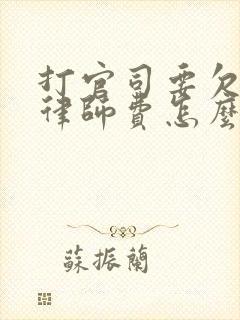 打官司要欠
律師費怎麼
蘇振蘭